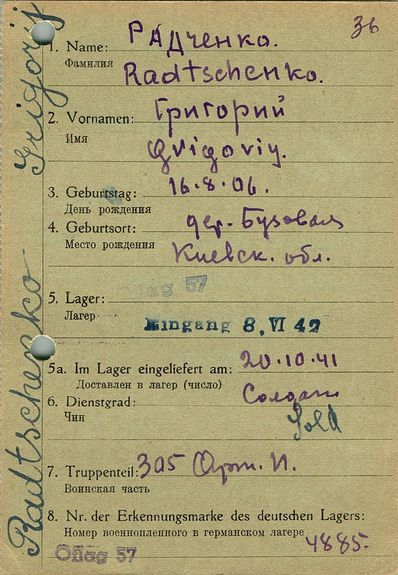 36
1. Name: Радченко.
Фамилия Radtschenko.
2. Vornamen: Григорий
Имя Grigoriy.
3. Geburtstag: 16.8.06.
День рождения
4. Geburtsort: дер. Бузовая
Место рождения Киевск. обл.
5. Lager: Oflag 57
Лагер
Eingang 8. VI 42
5a. Im Lager eingeliefert am: 20.10.41
Доставлен в лагер (число)
6. Dienstgrad: Солдат
Чин Sold
7. Truppenteil: 305 Арт. П.
Воинская часть
8. Nr. der Erkennungsmarke des deutschen Lagers:
Номер военнопленного в германском лагере 4885.
Oflag 57
Radtschenko Grigorij